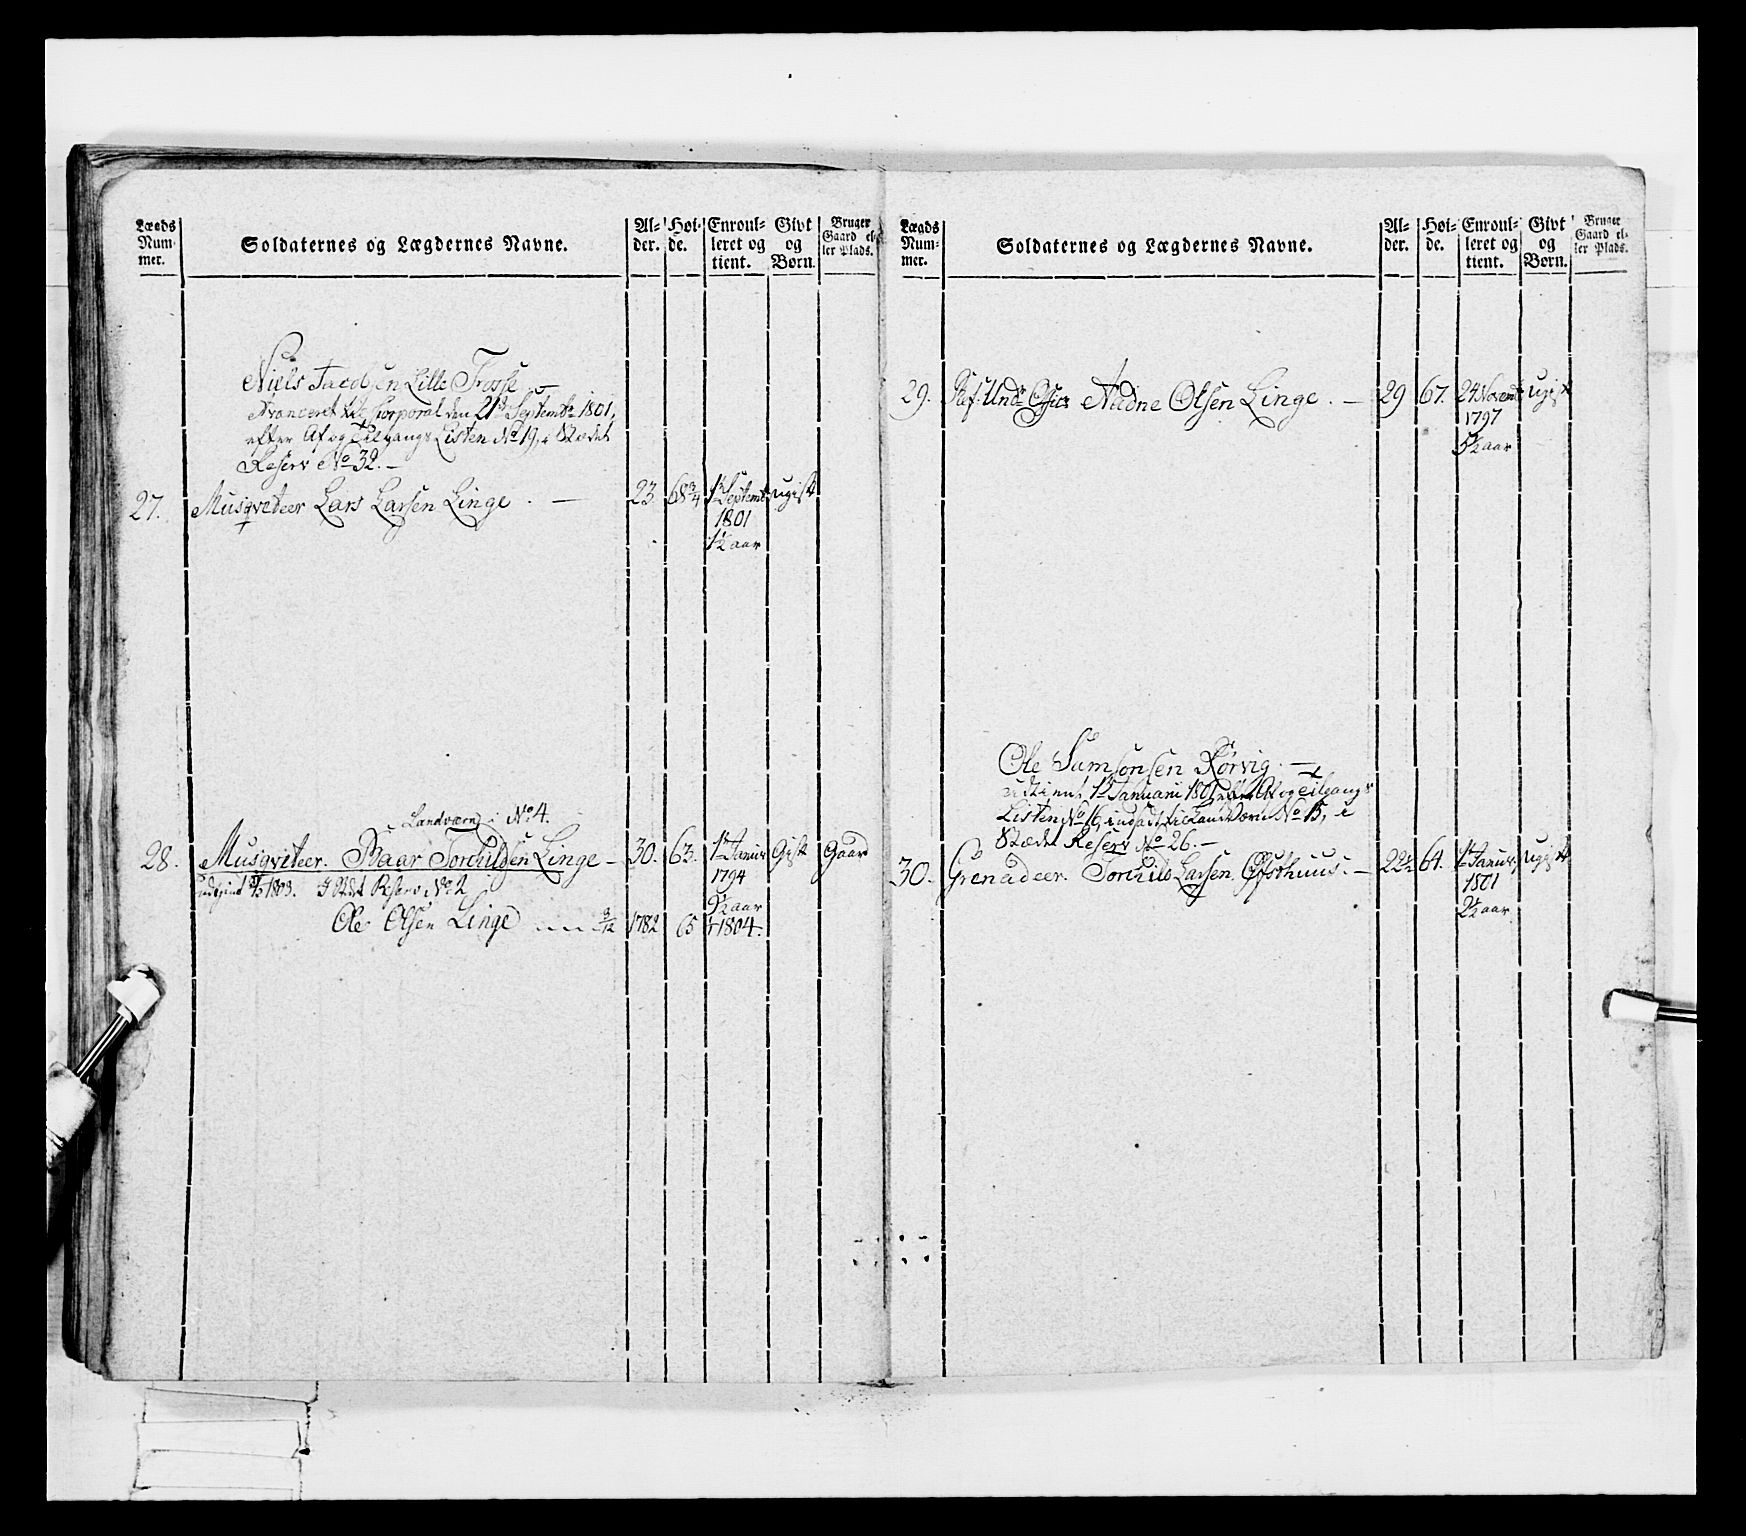 Lægds Num- mer.
Soldaternes og Lægdernes Navne.
Al- der.
Høi- de.
Enroul- leret og tient.
Givt og Børn.
Bruger Gaard el- ler Plads.
Niels Jacobsen Lille Fosse
Avanceret til Corporal den 21de Septembr 1801,
efter Af og Tilgangs Listen No 19, i Stædet
Reserv No 32. —
27. Musqveteer Lars Larsen Linge . — 23. 68 3/4 1te Septembr ugift
1801
1 1/2 aar
Landværn i No 4.
28. Musqviteer. Baar Torkildsen Linge — 30. 63. 1te Januar Gift Gaard
1794
9 1/2 aar
1803. I Stdt Reserv No 2
Ole Olsen Linge 3/12 1782 65 1/1 1804.
Lægds Num- mer.
Soldaternes og Lægdernes Navne.
Al- der.
Høi- de.
Enroul- leret og tient.
Givt og Børn.
Bruger Gaard el- ler Plads.
29. Und: Offic: Audne Olsen Linge. — 29 67. 24 Novemb ugift
1797
5 1/2 aar
Ole Samsonsen Rörvig. —
udtient 1te Januari 1801 efter Af og Tilgangs
Listen No 16, indsadt til Land Værn No 15, i
Stædet Reserv No 26. —
30. Grenadeer. Torkild Larsen Opsthuus. — 22 1/2 64. 1te Januar ugift
1801
2 1/2 aar